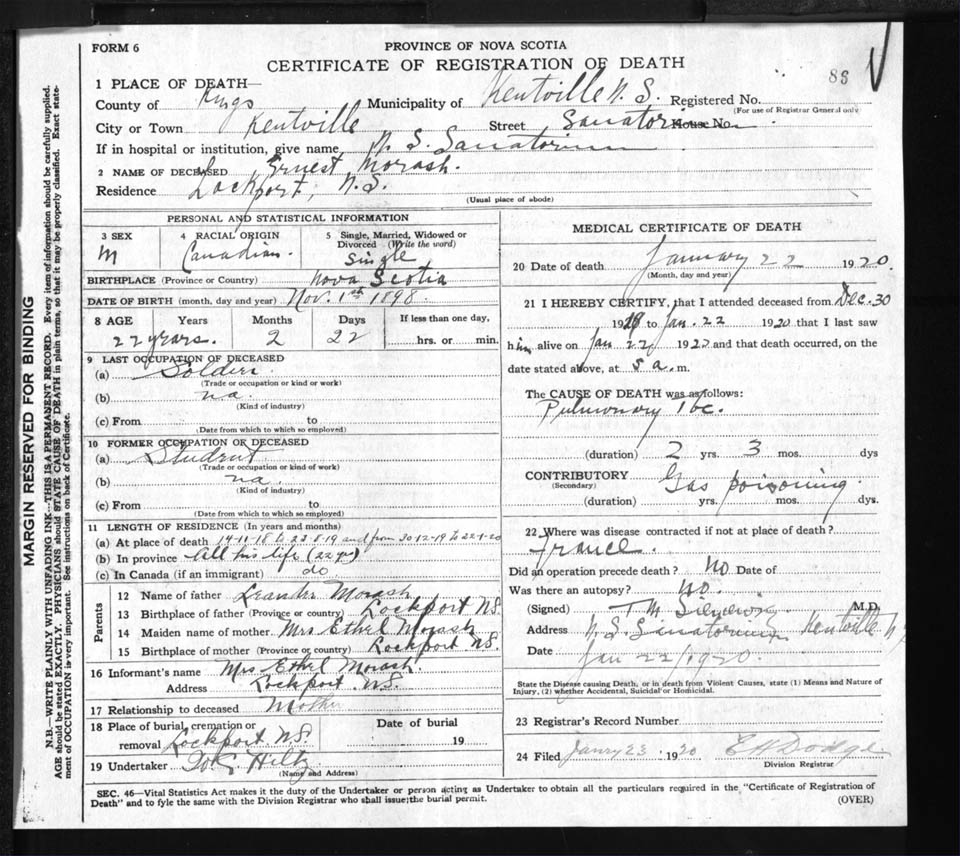 FORM 6
PROVINCE OF NOVA SCOTIA
CERTIFICATE OF REGISTRATION OF DEATH
83
1 PLACE OF DEATH—
County of Kings Municipality of Kentville N. S. Registered No.
(For use of Registrar General only)
City or Town Kentville Street Sanatorium House No.
If in hospital or institution, give name N. S. Sanatorium
2 NAME OF DECEASED Ernest Morash.
Residence Lockport, N.S.
(Usual place of abode)
PERSONAL AND STATISTICAL INFORMATION
3 SEX
M
4 RACIAL ORIGIN
Canadian.
5 Single, Married, Widowed or Divorced (Write the word)
Single
BIRTHPLACE (Province or Country) Nova Scotia
DATE OF BIRTH (month, day and year) Nov. 1st 1898.
8 AGE Years Months Days If less than one day,
22 years. 2 22 hrs. or min.
9 LAST OCCUPATION OF DECEASED
(a) Soldier
(Trade or occupation or kind or work)
(b) na.
(Kind of industry)
(c) From to
(Date from which to which so employed)
10 FORMER OCCUPATION OR DECEASED
(a) Student
(Trade or occupation or kind of work)
(b) na.
(Kind of industry)
(c) From to
(Date from which to which so employed)
11 LENGTH OF RESIDENCE (In years and months)
(a) At place of death 14-11-18 to 23-8-19 and from 30-12-19 to 22-1-20
(b) In province All his life (22 yrs)
(c) In Canada (if an immigrant) do
Parents
12 Name of father Leander Morash
13 Birthplace of father (Province or country) Lockport NS.
14 Maiden name of mother Mrs Ethel Morash
15 Birthplace of mother (Province or country) Lockport NS.
16 Informant's name Mrs Ethel Morash.
Address Lockport NS.
17 Relationship to deceased Mother
18 Place of burial, cremation or removal Lockport NS.
Date of burial
19
19 Undertaker Hiltz
(Name and Address)
MEDICAL CERTIFICATE OF DEATH
20 Date of death January 22 1920.
(Month, day and year)
21 I HEREBY CERTIFY, that I attended deceased from Dec. 30
1919 to Jan. 22 1920 that I last saw
him alive on Jan 22 1920 and that death occurred, on the
date stated above, at 5 a.m.
The CAUSE OF DEATH was as follows:
Pulmonary Tbc.
(duration) 2 yrs. 3 mos. dys
CONTRIBUTORY
(Secondary)
Gas poisoning.
(duration) yrs. mos. dys.
22 Where was disease contracted if not at place of death?
France.
Did an operation precede death? No Date of
Was there an autopsy? No.
(Signed) T M M.D.
Address N. S. Sanatorium Kentville N
Date Jan 22/1920.
State the Disease causing Death, or in death from Violent Causes, state (1) Means and Nature of
Injury, (2) whether Accidental, Suicidal or Homicidal.
23 Registrar's Record Number
24 Filed Janry 23 1920 E H Dodge
Division Registrar
SEC. 46—Vital Statistics Act makes it the duty of the Undertaker or person acting as Undertaker to obtain all the particulars required in the "Certificate of Registration of
Death" and to fyle the same with the Division Registrar who shall issue the burial permit.
(OVER)
MARGIN RESERVED FOR BINDING
N.B.—WRITE PLAINLY WITH UNFADING INK—THIS IS A PERMANENT RECORD. Every item of information should be carefully supplied.
AGE should be stated EXACTLY. PHYSICIANS should STATE CAUSE OF DEATH in plain terms, so that it may be properly classified. Exact state-
ment of OCCUPATION is very important. See instructions on back of Certificate.